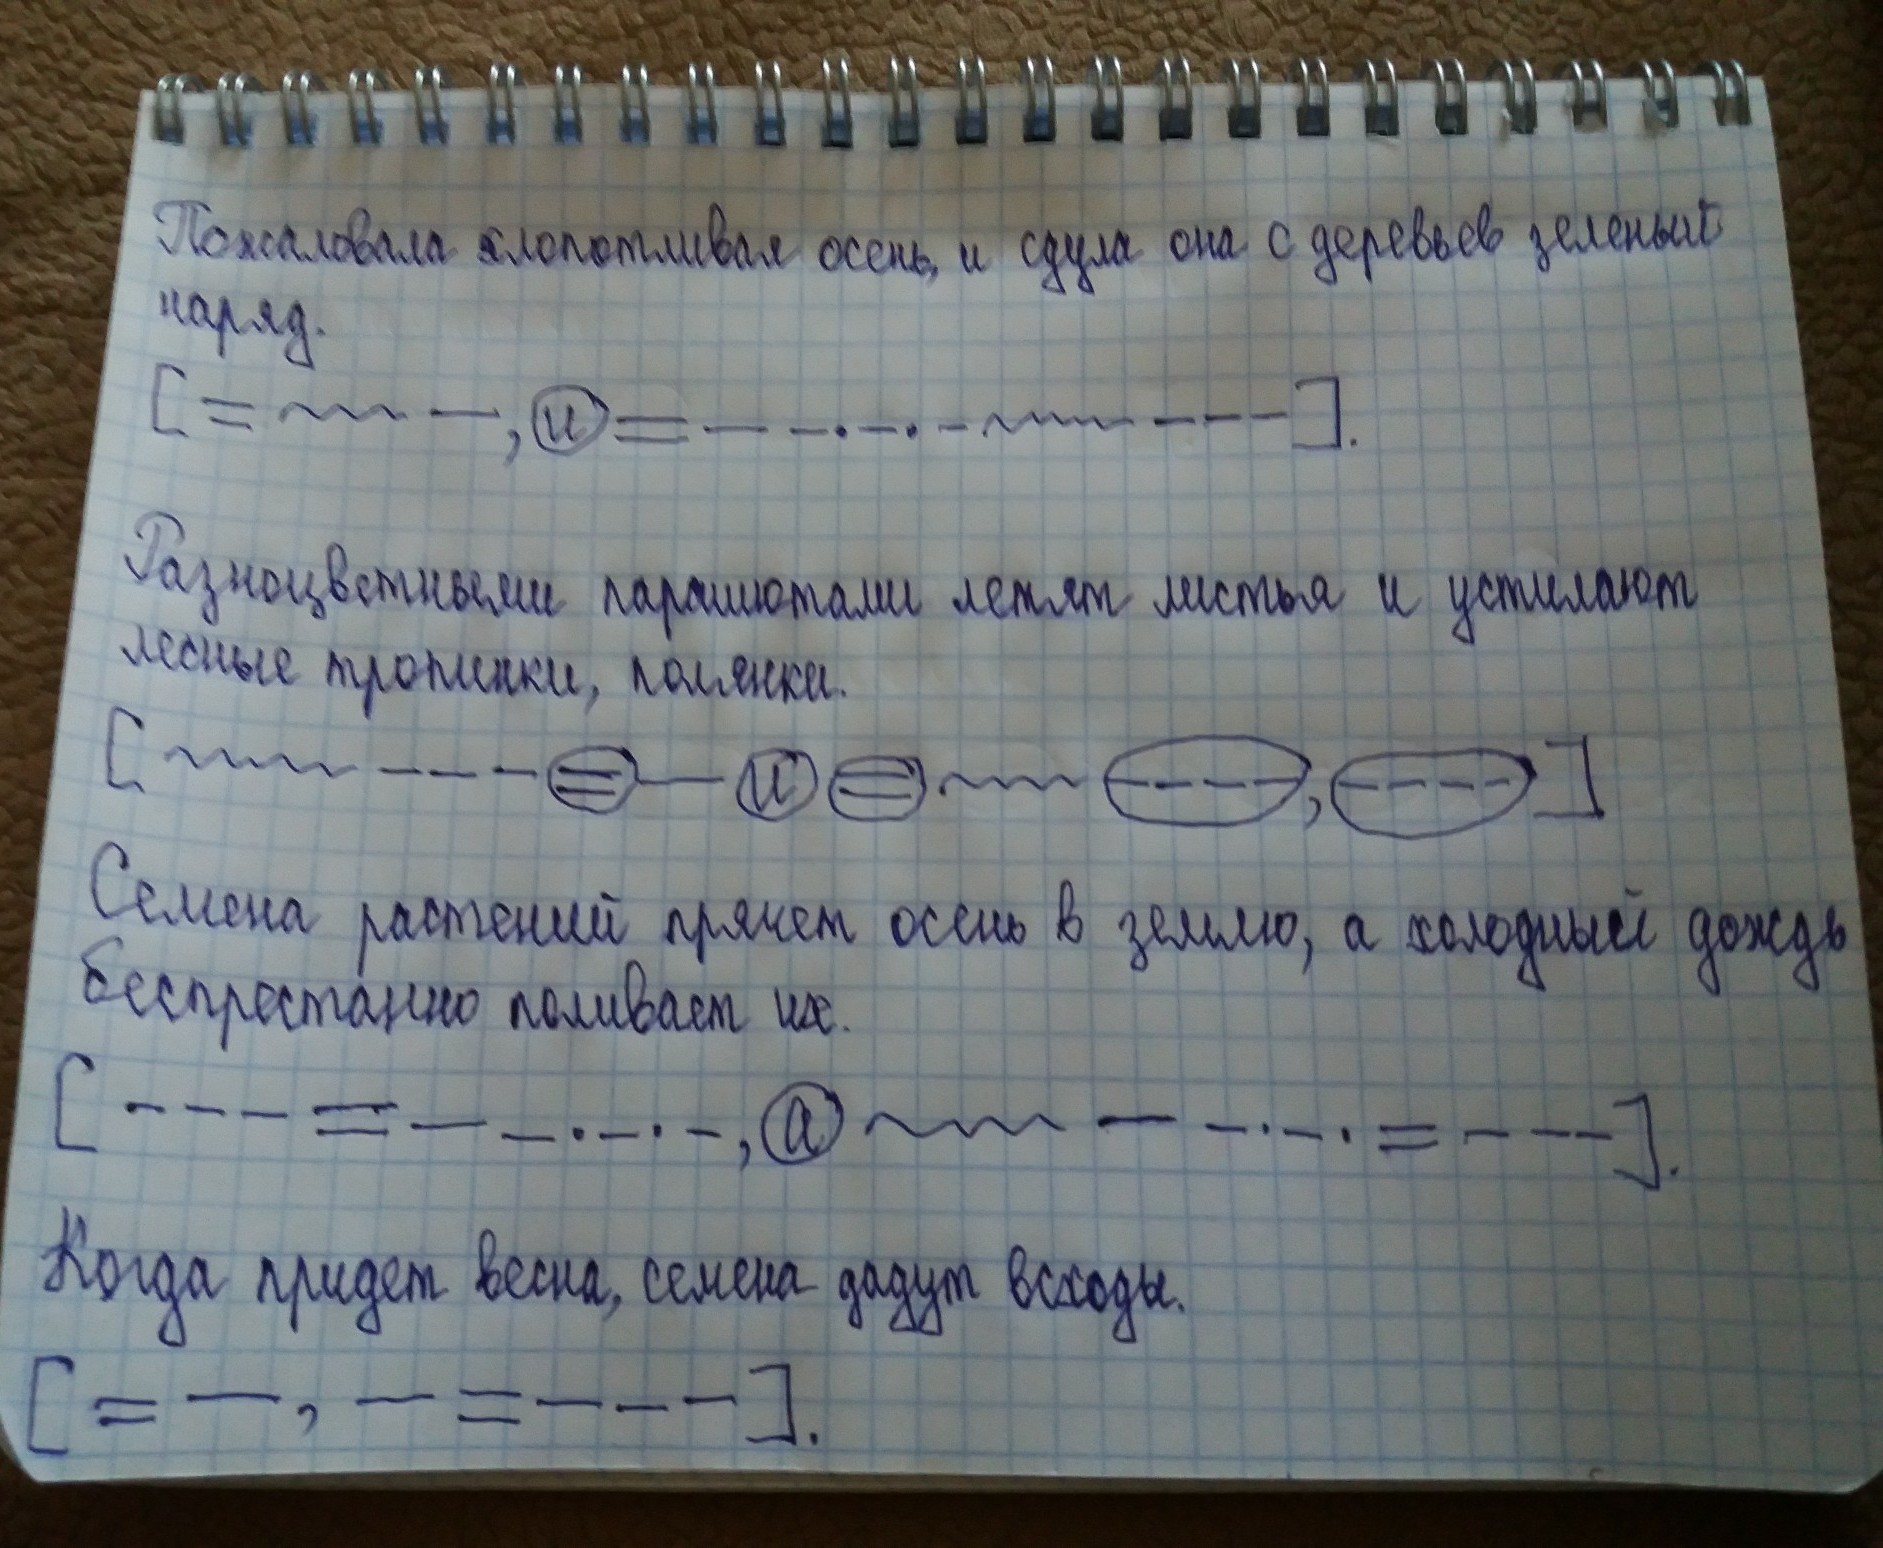 Пожаловала хлопотливая осень, и сдула она с деревьев зеленый
наряд.
[= ~~~ —, и = — —.—.— ~~~ – – –].
Разноцветными парашютами летят листья и устилают
лесные тропинки, полянки.
[~~~ – – – = — и = ~~~ – – – –, – – – –]
Семена растений прячет осень в землю, а холодный дождь
беспрестанно поливает их.
[– – – = — —.—.—, а ~~~ — —.—. = – – –].
Когда придет весна, семена дадут всходы.
[= —, — = – – –].